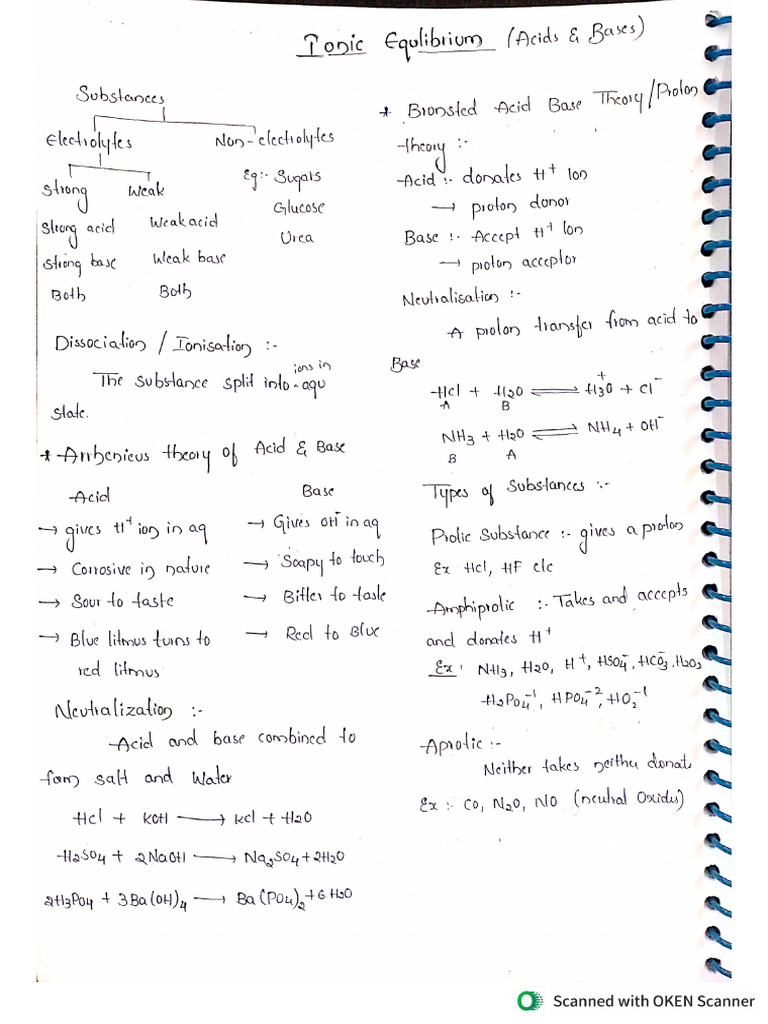 Ionic Equlibrium (Acids & Bases)
Substances
Electrolytes Non-electrolytes
Strong Weak Eg:- Sugars
Strong acid Weak acid Glucose
Strong base Weak base Urea
Both Both
Dissociation / Ionisation :-
The substance split into ions in aqu
state.
* Arrhenicus theory of Acid & Base
Acid Base
→ gives H⁺ ion in aq → Gives OH⁻ in aq
→ Corrosive in nature → Soapy to touch
→ Sour to taste → Bitter to taste
→ Blue litmus turns to → Red to Blue
red litmus
Neutralization :-
Acid and base combined to
form salt and Water
Hcl + KOH → kcl + H2O
H2SO4 + 2NaOH → Na2SO4 + 2H2O
2H3PO4 + 3Ba(OH)4 → Ba(PO4)2 + 6H2O
* Bronsted Acid Base Theory/Proton
Theory :-
Acid :- donates H⁺ Ion
→ proton donor
Base :- Accept H⁺ Ion
→ proton acceptor
Neutralisation :-
A proton transfer from acid to
Base
Hcl + H2O ⇌ H3O⁺ + Cl⁻
A B
NH3 + H2O ⇌ NH4 + OH⁻
B A
Types of Substances :-
Protic Substance :- gives a proton
Ex Hcl, HF etc
Amphiprotic :- Takes and accepts
and donates H⁺
Ex: NH3, H2O, H⁺, HSO4⁻, HCO3⁻, H2O2
H2PO4⁻¹, HPO4⁻², HO2⁻¹
Aprotic :-
Neither takes neither donat
Ex :- CO, N2O, NO (neutral Oxides)
Scanned with OKEN Scanner